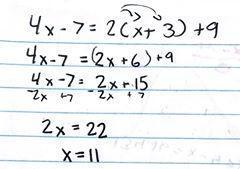 4x-7=2(x+3)+9
4x-7=(2x+6)+9
4x-7=2x+15
-2x +7 -2x +7
2x=22
x=11